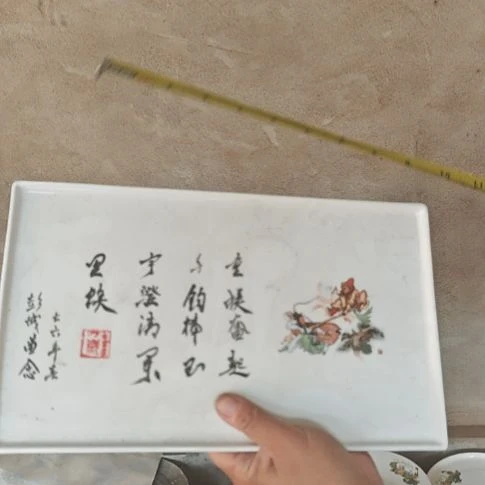 金猴奮起
千钧棒玉
宇澄清萬
里埃
七六年春
彭城留念
10 11